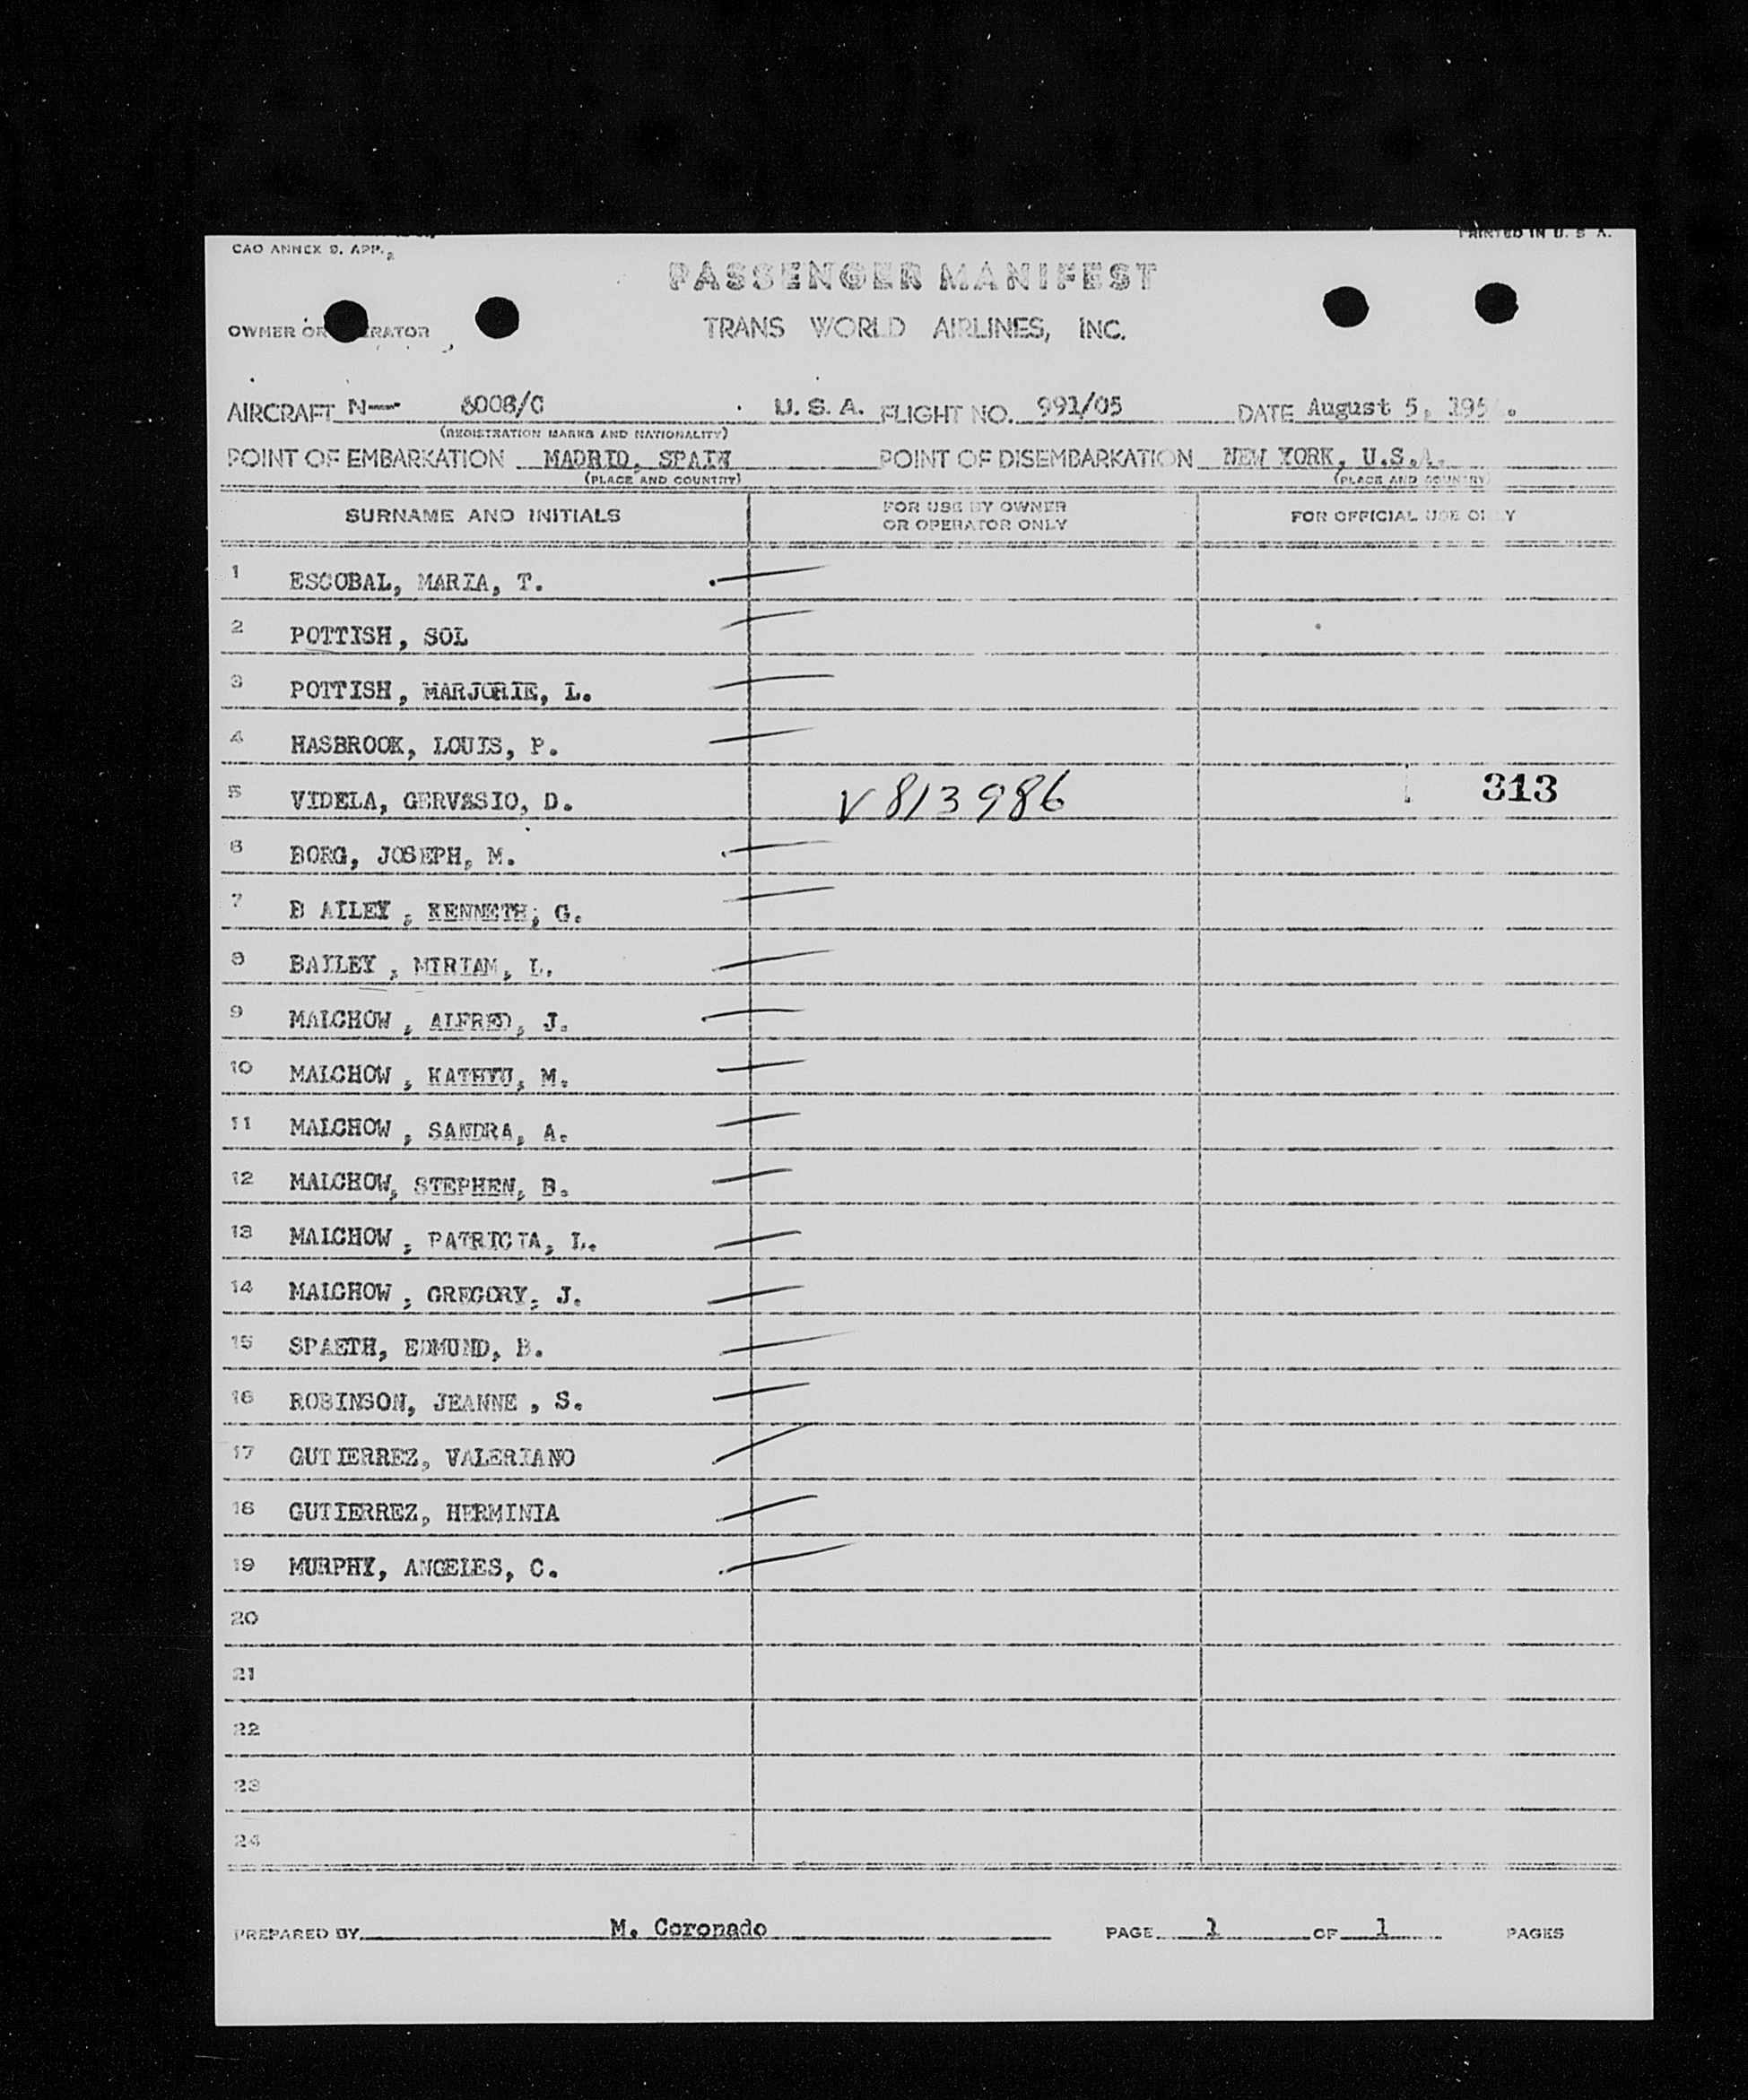 CAO ANNEX 9, APP. 2
PRINTED IN U. S. A.
PASSENGER MANIFEST
OWNER OR OPERATOR TRANS WORLD AIRLINES, INC.
AIRCRAFT N— 6008/C U. S. A. FLIGHT NO. 991/05 DATE August 5,
(REGISTRATION MARKS AND NATIONALITY)
POINT OF EMBARKATION MADRID, SPAIN POINT OF DISEMBARKATION NEW YORK, U.S.A.
(PLACE AND COUNTRY) (PLACE AND COUNTRY)
SURNAME AND INITIALS FOR USE BY OWNER OR OPERATOR ONLY FOR OFFICIAL USE ONLY
1 ESCOBAL, MARIA, T.
2 POTTISH, SOL
3 POTTISH, MARJORIE, L.
4 HASBROOK, LOUIS, P.
5 VIDELA, GERVASIO, D. V 813986 313
6 BORG, JOSEPH, M.
7 B AILEY , KENNETH, G.
8 BAILEY , MIRIAM, L.
9 MALCHOW , ALFRED, J.
10 MALCHOW , M.
11 MALCHOW , SANDRA, A.
12 MALCHOW, STEPHEN, B.
13 MALCHOW , PATRICIA, L.
14 MALCHOW , GREGORY, J.
15 SPAETH, EDMUND, B.
16 ROBINSON, JEANNE , S.
17 GUTIERREZ, VALERIANO
18 GUTIERREZ, HERMINIA
19 MURPHY, ANGELES, C.
20
21
22
23
24
PREPARED BY M. Coronado PAGE 1 OF 1 PAGES